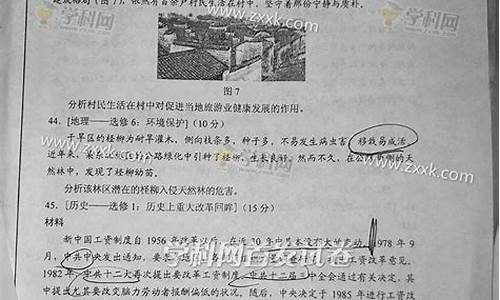 建成格局（图7），依然有百余户村民生活在村中，坚守着那份宁静与质朴。
学科网
www.zxxk.com
学科网
图7
分析村民生活在村中对促进当地旅游业健康发展的作用。
44. [地理——选修6：环境保护]（10分）
干旱区的柽柳为耐旱灌木，侧向枝条多，种子多，不易发生病虫害，移栽易成活。
近年来，某市在城市公路绿化中引种了柽柳，生长良好，然而不久，在公路两侧的天
然林中，发现了柽柳幼苗。
分析该林区潜在的柽柳入侵天然林的危害。
45. [历史——选修1：历史上重大改革回眸]（15分）
材料
新中国工资制度自1956年改革以后，在近30年中基本没有大的变动。1978年9
月，中共中央发出通知，要求
工资改革意见。
1982年，中共十二大再次提出要改革工资制度，中共十二届三中全会通过有关决定，其
中提出尤其要改变脑力劳动者报酬偏低的状况，随后，中央决定于1985年进行工资改
学科网首发试卷
www.zxxk.com